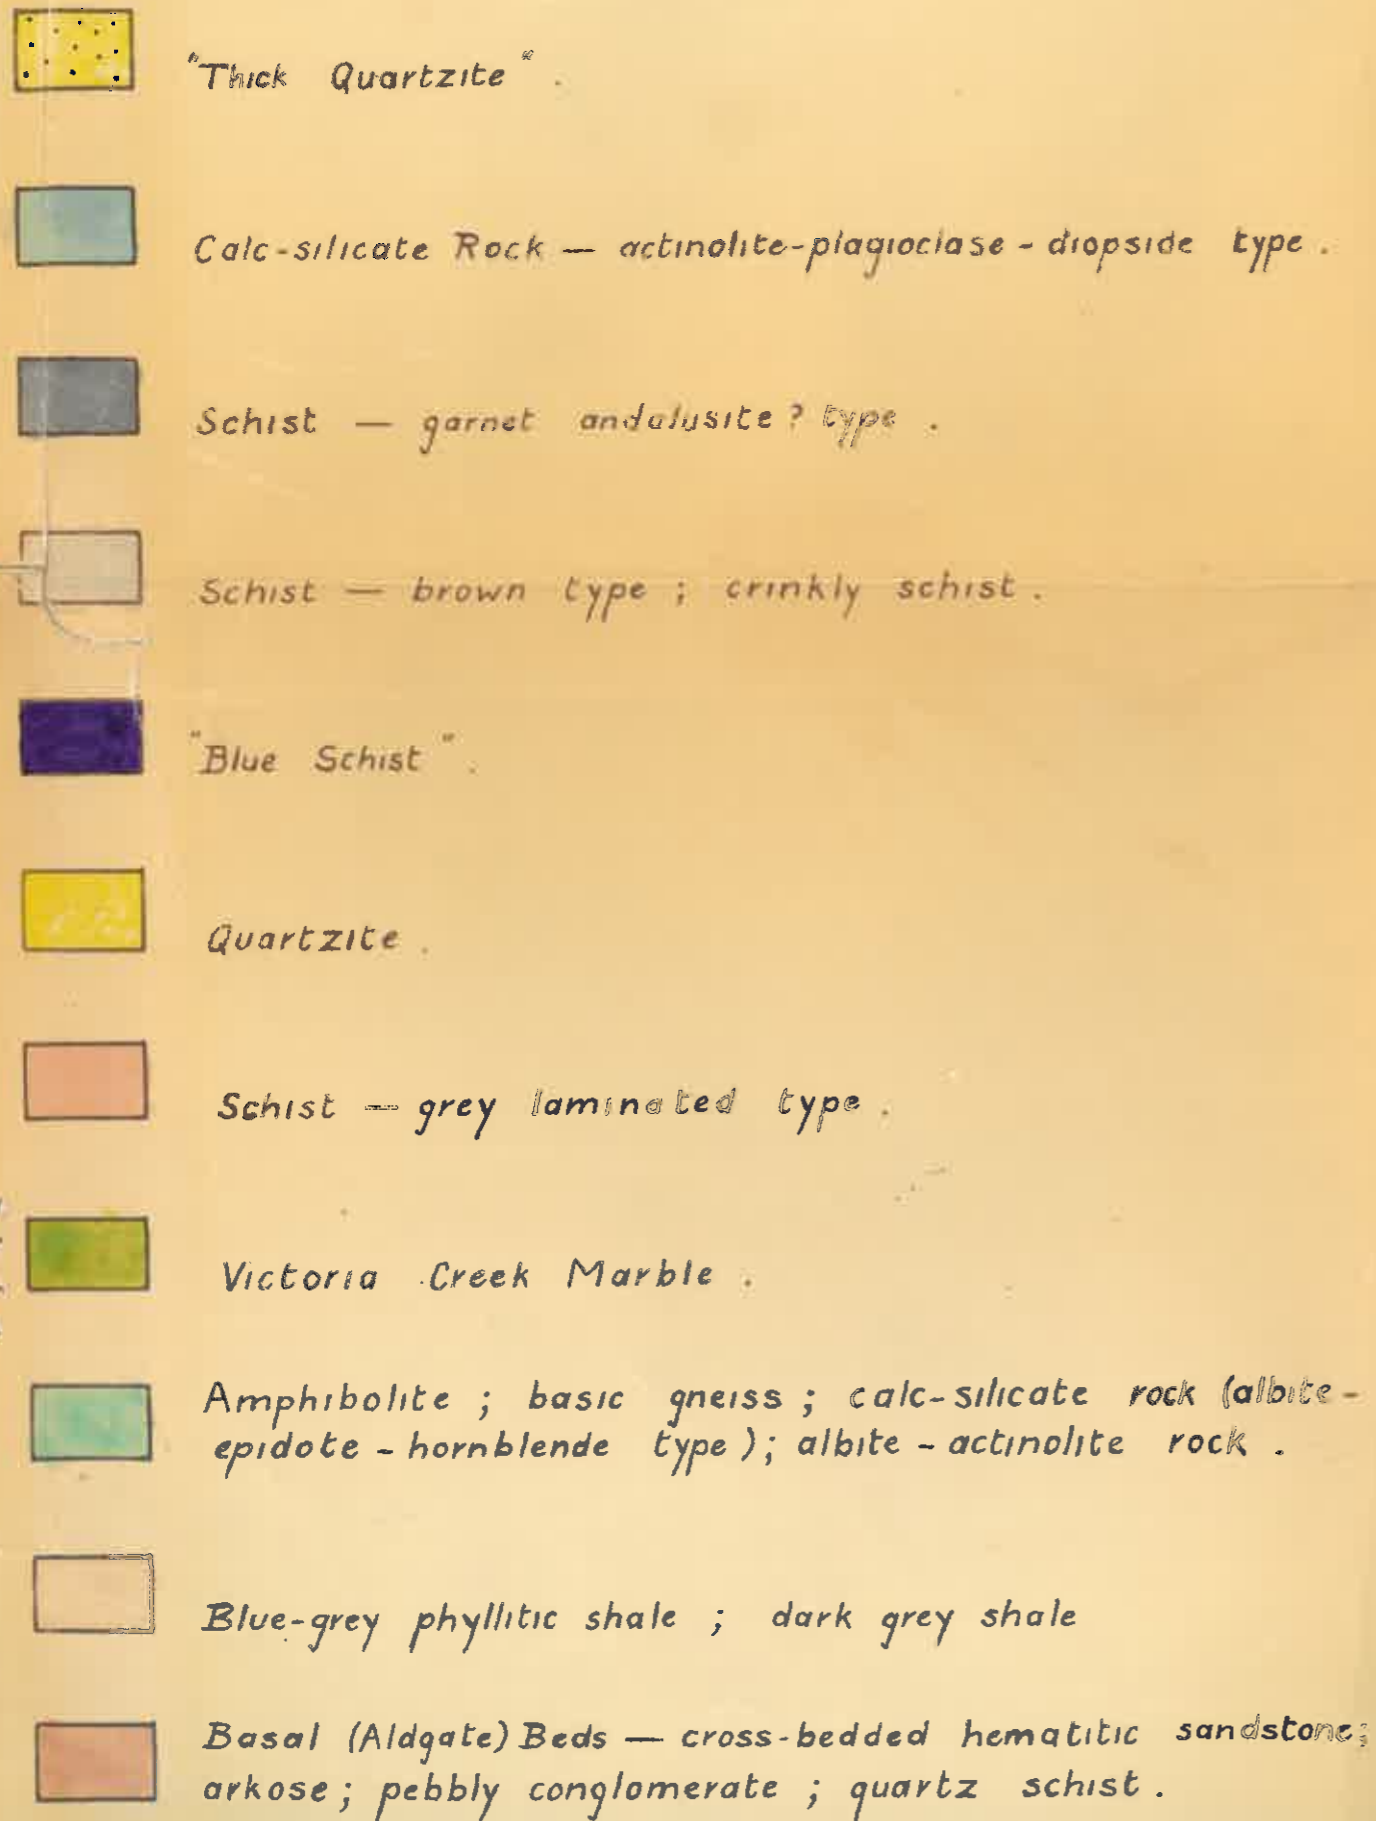 "Thick Quartzite".
Calc-silicate Rock — actinolite-plagioclase-diopside type.
Schist — garnet andalusite? type.
Schist — brown type; crinkly schist.
"Blue Schist".
Quartzite.
Schist — grey laminated type.
Victoria Creek Marble.
Amphibolite; basic gneiss; calc-silicate rock (albite-
epidote-hornblende type); albite-actinolite rock.
Blue-grey phyllitic shale; dark grey shale
Basal (Aldgate) Beds — cross-bedded hematitic sandstone;
arkose; pebbly conglomerate; quartz schist.